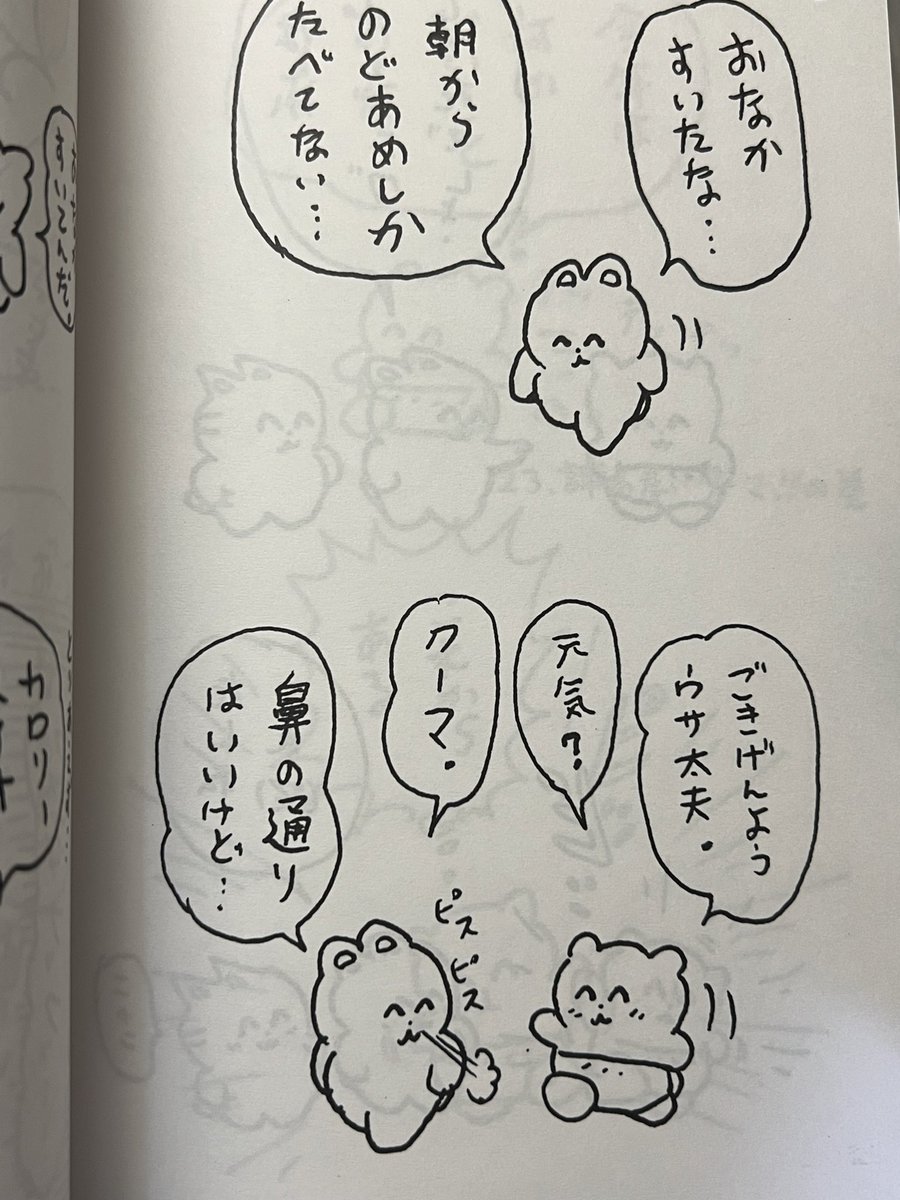 おなか
すいたな…
朝から
のどあめしか
たべてない…
ごきげんよう
ウサ太夫.
元気?
クーマ.
鼻の通り
はいいけど…
ピス
ピス
すいてんだ.
カロリー